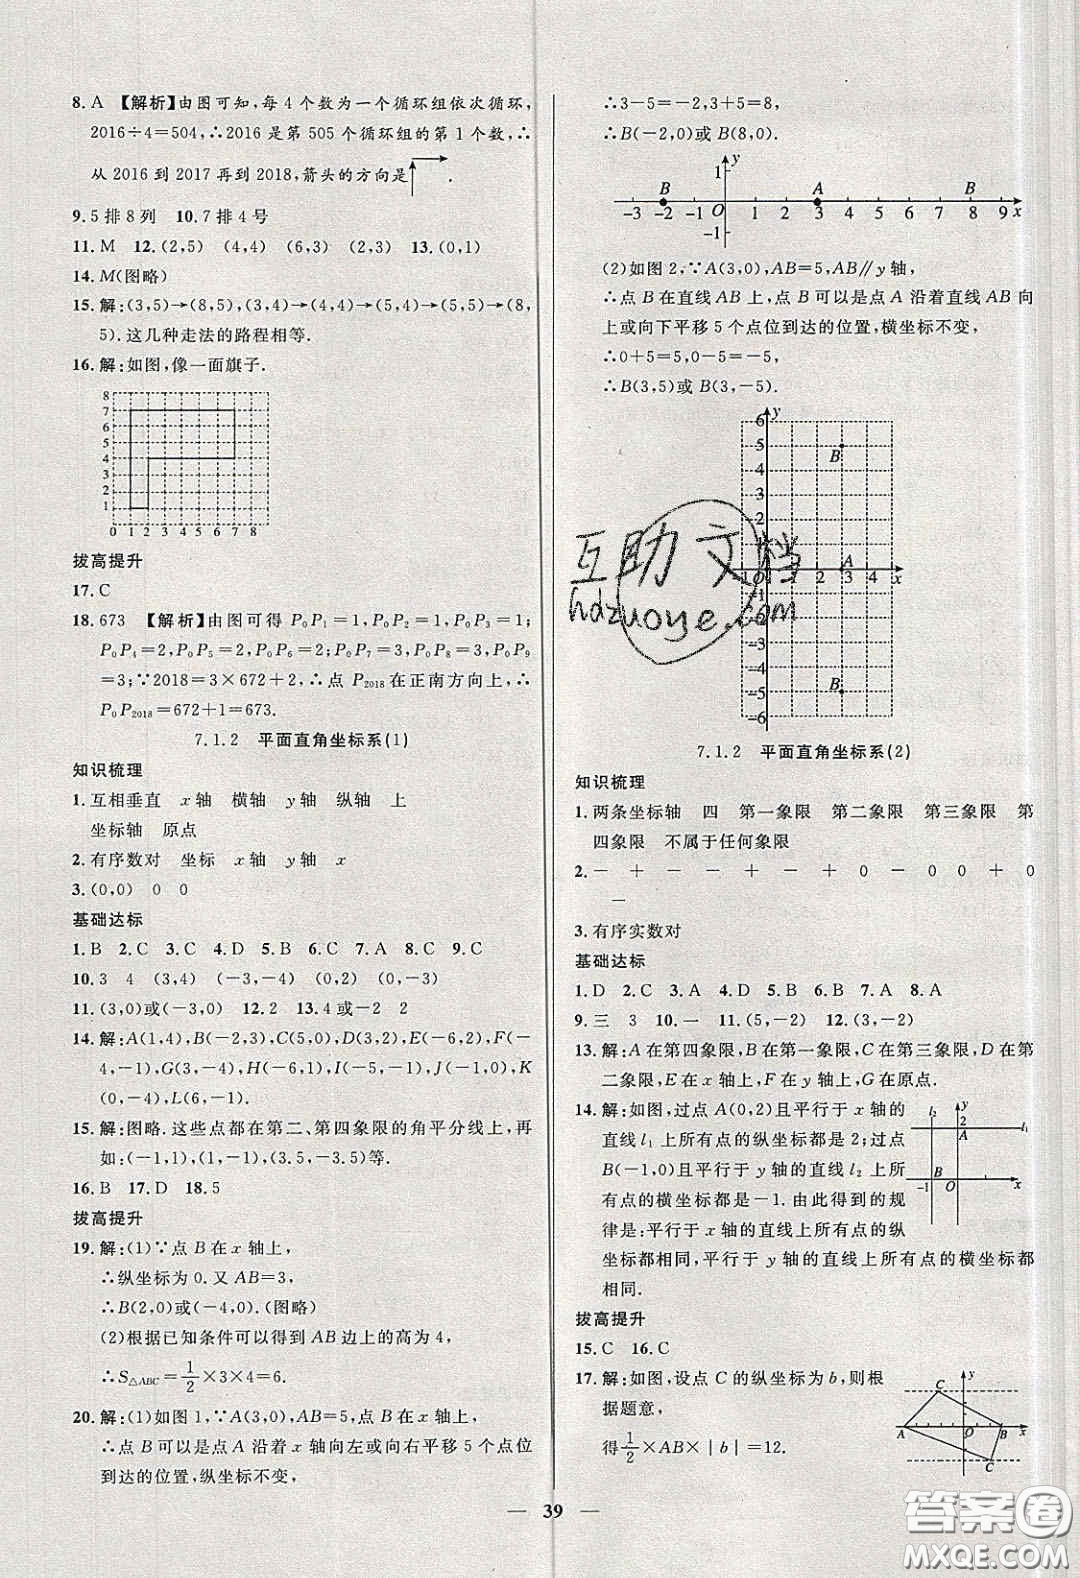 8. A 【解析】由图可知,每4个数为一个循环组依次循环,
2016÷4=504,∴2016是第505个循环组的第1个数,∴
从2016到2017再到2018,箭头的方向是 .
9. 5排8列 10. 7排4号
11. M 12. (2,5) (4,4) (6,3) (2,3) 13. (0,1)
14. M(图略)
15. 解:(3,5)→(8,5),(3,4)→(4,4)→(4,5)→(5,5)→(8,
5).这几种走法的路程相等.
16. 解:如图,像一面旗子.
8
7
6
5
4
3
2
1
0 1 2 3 4 5 6 7 8
拔高提升
17. C
18. 673 【解析】由图可得 P₀P₁=1,P₀P₂=1,P₀P₃=1;
P₀P₄=2,P₀P₅=2,P₀P₆=2;P₀P₇=3,P₀P₈=3,P₀P₉
=3;∵2018=3×672+2,∴点 P₂₀₁₈在正南方向上,∴
P₀P₂₀₁₈=672+1=673.
7.1.2 平面直角坐标系(1)
知识梳理
1. 互相垂直 x轴 横轴 y轴 纵轴 上
坐标轴 原点
2. 有序数对 坐标 x轴 y轴 x
3. (0,0) 0 0
基础达标
1. B 2. C 3. C 4. D 5. B 6. C 7. A 8. C 9. C
10. 3 4 (3,4) (-3,-4) (0,2) (-3,0)
11. (3,0)或(-3,0) 12. 2 13. 4或-2 2
14. 解:A(1,4),B(-2,3),C(5,0),D(1,2),E(-6,2),F(-
4,-1),G(3,-4),H(-1,-6),I(-5,-5),J(-1,0),K
(0,-4),L(6,-1).
15. 解:图略.这些点都在第二、第四象限的角平分线上,再
如:(-1,1),(1,-1),(3.5,-3.5)等.
16. B 17. D 18. 5
拔高提升
19. 解:(1)∵点B在x轴上,
∴纵坐标为0.又AB=3,
∴B(2,0)或(-4,0).(图略)
(2)根据已知条件可以得到AB边上的高为4,
∴S△ABC=1/2×3×4=6.
20. 解:(1)如图1,∵A(3,0),AB=5,点B在x轴上,
∴点B可以是点A沿着x轴向左或向右平移5个点位
到达的位置,纵坐标不变,
∴3-5=-2,3+5=8,
∴B(-2,0)或B(8,0).
y
1
B A B
-3 -2 -1 O 1 2 3 4 5 6 7 8 9 x
-1
(2)如图2,∵A(3,0),AB=5,AB∥y轴,
∴点B在直线AB上,点B可以是点A沿着直线AB向
上或向下平移5个点位到达的位置,横坐标不变,
∴0+5=5,0-5=-5,
∴B(3,5)或B(3,-5).
y
6
5
B
4
3
2
A
1 2 3 4 x
-1
-2
-3
-4
B
-5
-6
互助文档
hdzuoye.com
7.1.2 平面直角坐标系(2)
知识梳理
1. 两条坐标轴 四 第一象限 第二象限 第三象限 第
四象限 不属于任何象限
2. - + - - + - + 0 - 0 0 + 0
-
3. 有序实数对
基础达标
1. D 2. C 3. A 4. D 5. D 6. A 7. A 8. A
9. 三 3 10. 一 11. (5,-2) 12. (3,-2)
13. 解:A在第四象限,B在第一象限,C在第三象限,D在第
二象限,E在x轴上,F在y轴上,G在原点.
14. 解:如图,过点A(0,2)且平行于x轴的
直线l₁上所有点的纵坐标都是2;过点
B(-1,0)且平行于y轴的直线l₂上所
有点的横坐标都是-1.由此得到的规
律是:平行于x轴的直线上所有点的纵
坐标都相同,平行于y轴的直线上所有点的横坐标都
相同.
l₂ y
2 l₁
A
B
-1 O x
拔高提升
15. C 16. C
17. 解:如图,设点C的纵坐标为b,则根
据题意,
得1/2×AB×|b|=12.
y
C
A O B x
C
39
答案圈
MXQE.COM